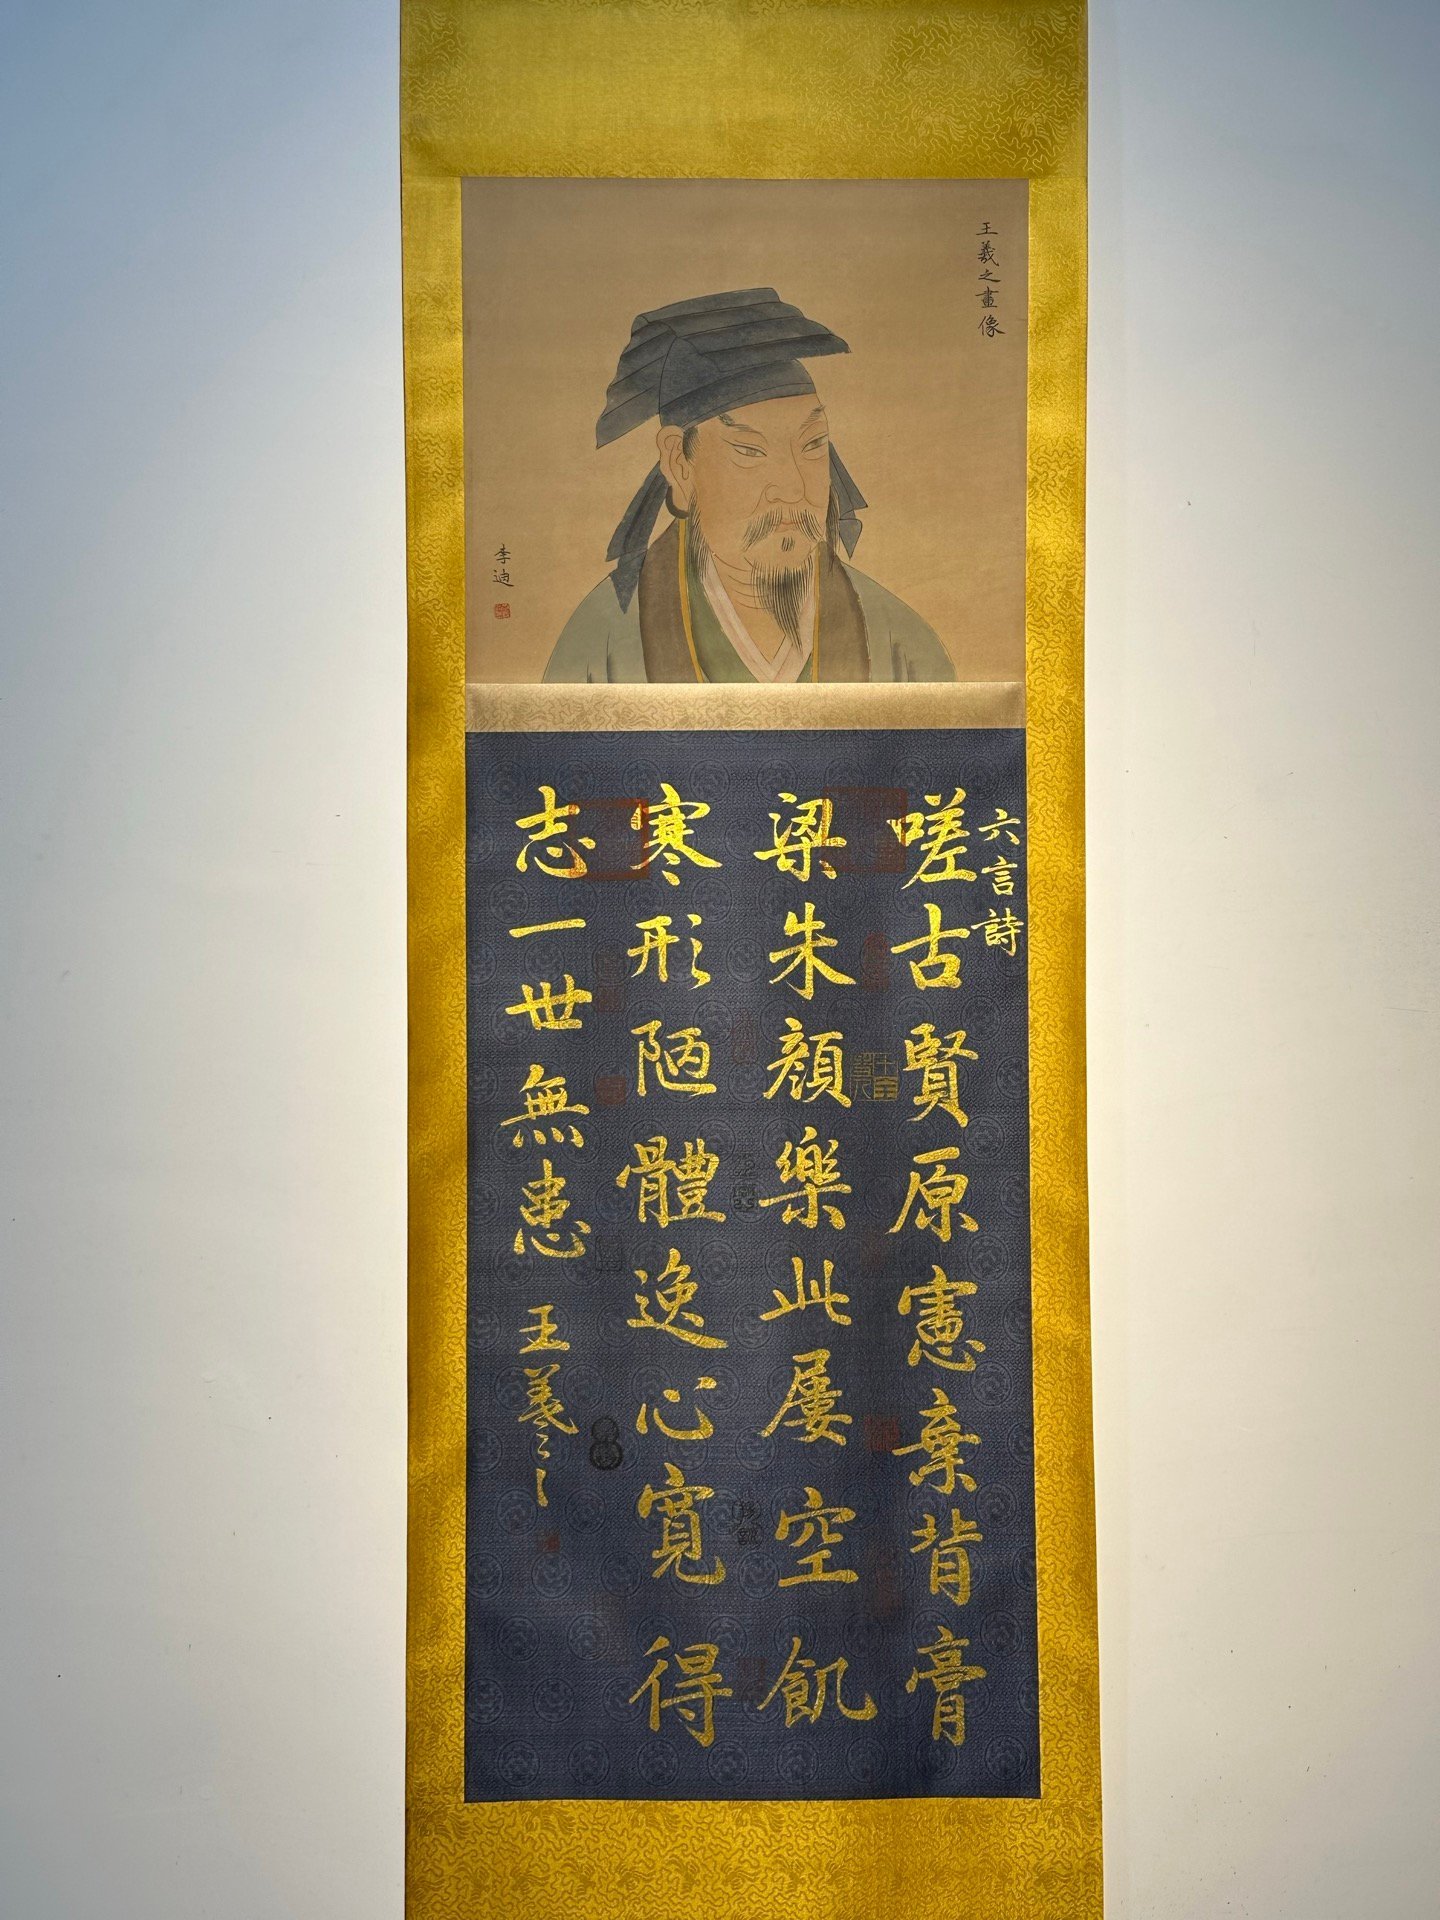 王羲之畫像
李迪
六言詩
嗟古賢原憲棄背膏
梁朱顏樂此屢空飢
寒形陋體逸心寬得
志一世無患
王羲之